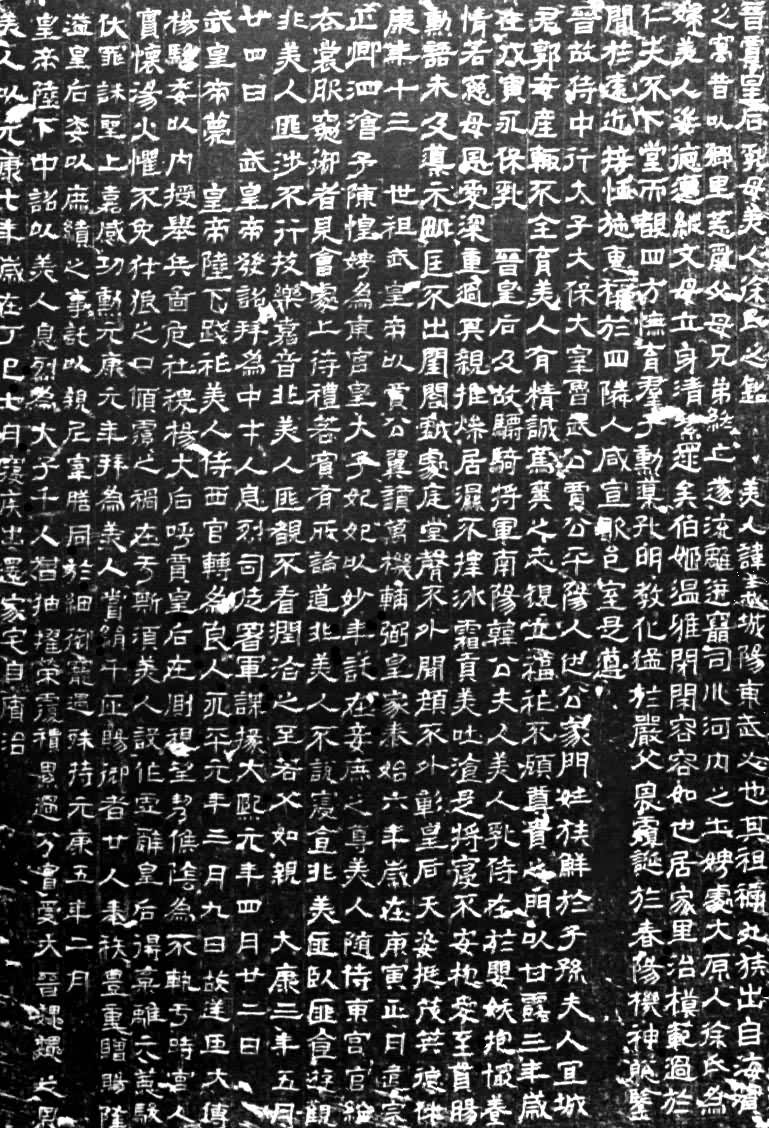 晉賈皇后乳母美人徐氏之銘　美人諱義城陽東武城人也其祖禰九族出自海濱
之寓昔以鄉里荒亂父母兄弟終亡遂流離迸竄司川河內之土娉處大原人徐氏為
婦美人姿德邈縱文母立身清絜還矣伯姬溫雅閑閑容容如也居家里治模範過於
仁夫不下堂而覩四方撫育羣子勳導孔明教化猛於嚴父恩覆誕於春陽機神聰鑒
聞於遠近接恤施惠稱於四隣人咸宣歌邑室是遵
晉故侍中行大子大保大宰魯武公賈公平陽人也公家門姓族鮮於子孫夫人宜城
君郭每產輒不全育美人有精誠篤爽之志規立福祚不顧尊貴之門以甘露三年歲
在戊寅永保乳　晉皇后及故驃騎將軍南陽韓公夫人美人乳侍在於嬰孩抱懷養
情若慈母恩愛深重過其親推燥居濕不擇冰霜貢美吐湌是將寢不安枕爰至貫腸
勳語未及導示毗匡不出閨閤戲處庭堂聲不外聞顏不外彰皇后天姿挺茂英德休
康年十三　世祖武皇帝以賈公翼讚萬機輔弼皇家泰始六年歲在庚寅正月遣宗
正卿泗滄子陳惶娉為東宮皇大子妃妃以妙年託在妾庶之尊美人隨侍東宮官給
衣裳服冕御者見會處上待禮若賓有所論道非美人不說寢食非美匪臥匪食遊觀
非美人匪涉不行技樂嘉音非美人匪覩不看潤洽之至若父如親　大康三年五月
廿四日　武皇帝發詔拜為中才人息烈司徒署軍謀掾大熙元年四月廿二日
武皇帝薨　皇帝陛下踐祚美人侍西宮轉為良人永平元年三月九日故逆臣大傅
楊駿委以內授舉兵圖危社稷楊大后呼賈皇后在側視望候陰為不軌于時宮人
實懷湯火懼不免豺狼之口傾覆之禍在于斯須美人設作虛辭皇后得棄離元惡駿
伏罪誅聖上嘉感功勳元康元年拜為美人賞絹千匹賜御者廿人奉秩豊重贈賜隆
溢皇后委以庶績之事託以親尼宰膳同於細御寵遇殊持元康五年二月
皇帝陛下中詔以美人息烈為大子千人督抽擢榮覆積累過分實受大晉魏魏之恩
美人以元康七年歲在丁巳七月寢疾出還家宅自療治